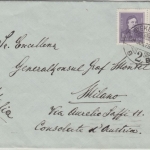 Se. Excellenz
Generalkonsul Graf
Milano
Via Aurelio Saffi 11
Consolato d'Austria
Italia